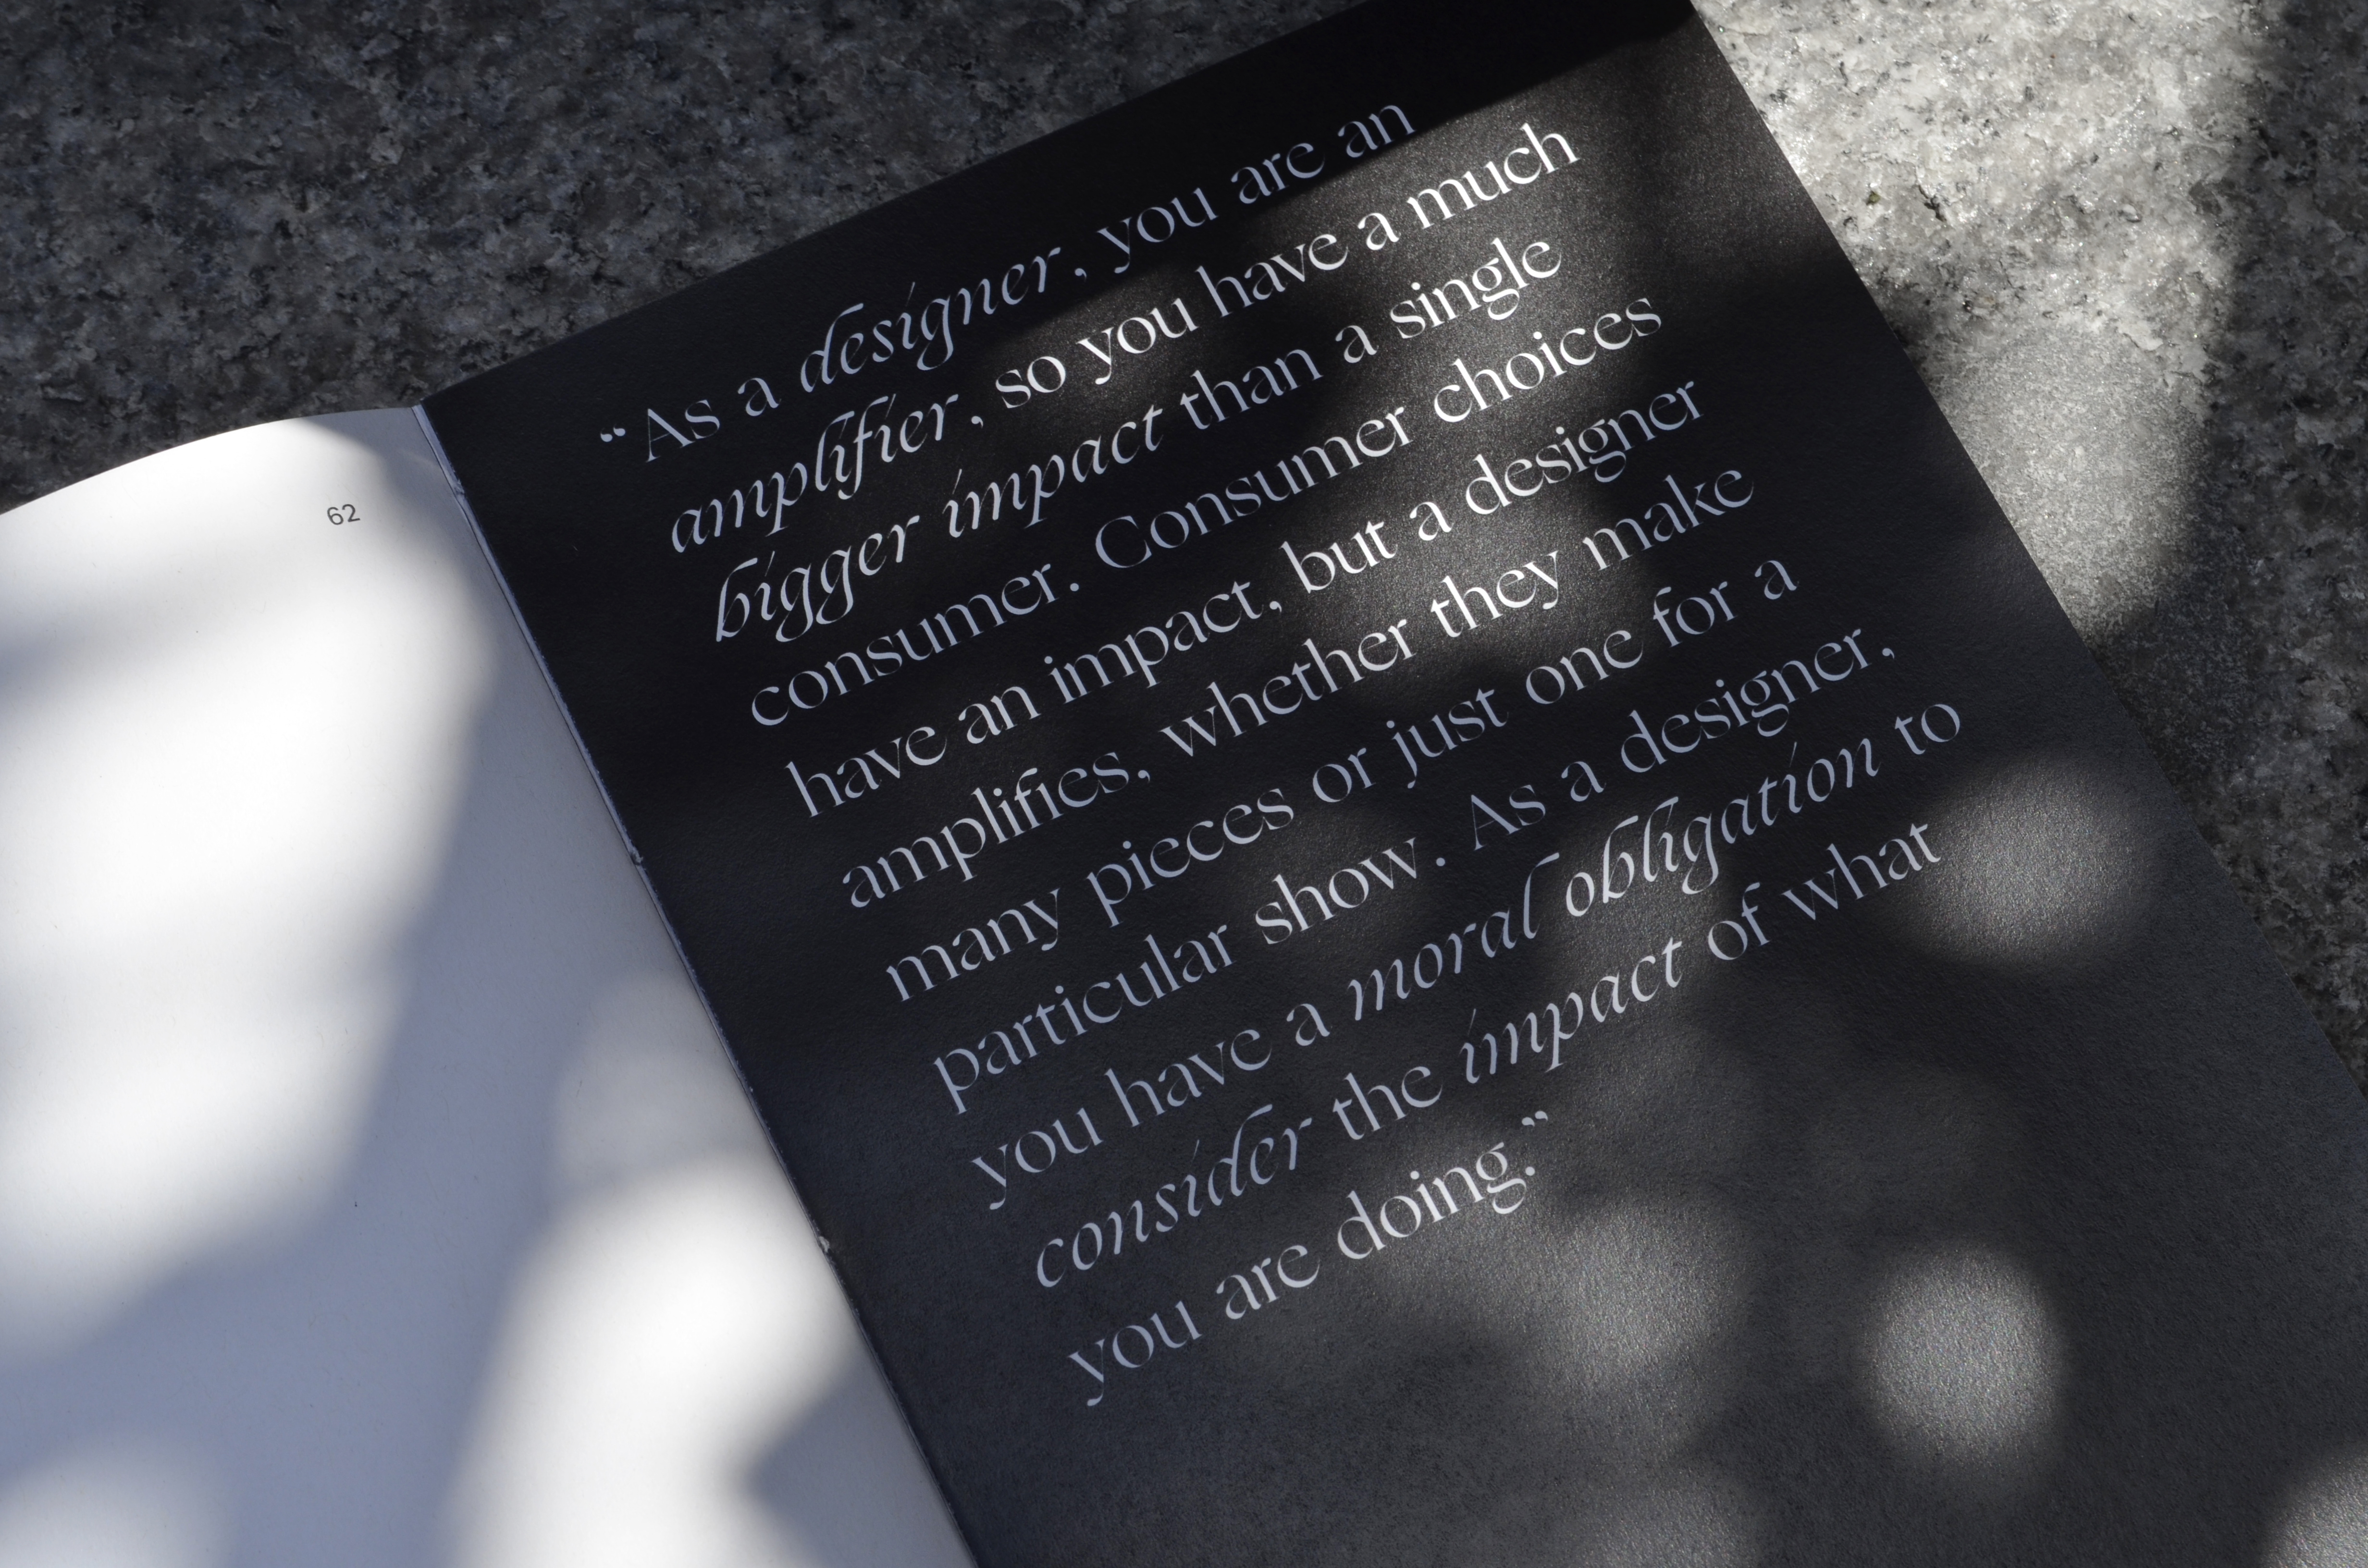 62
“As a designer, you are an
amplifier, so you have a much
bigger impact than a single
consumer. Consumer choices
have an impact, but a designer
amplifies, whether they make
many pieces or just one for a
particular show. As a designer,
you have a moral obligation to
consider the impact of what
you are doing.”